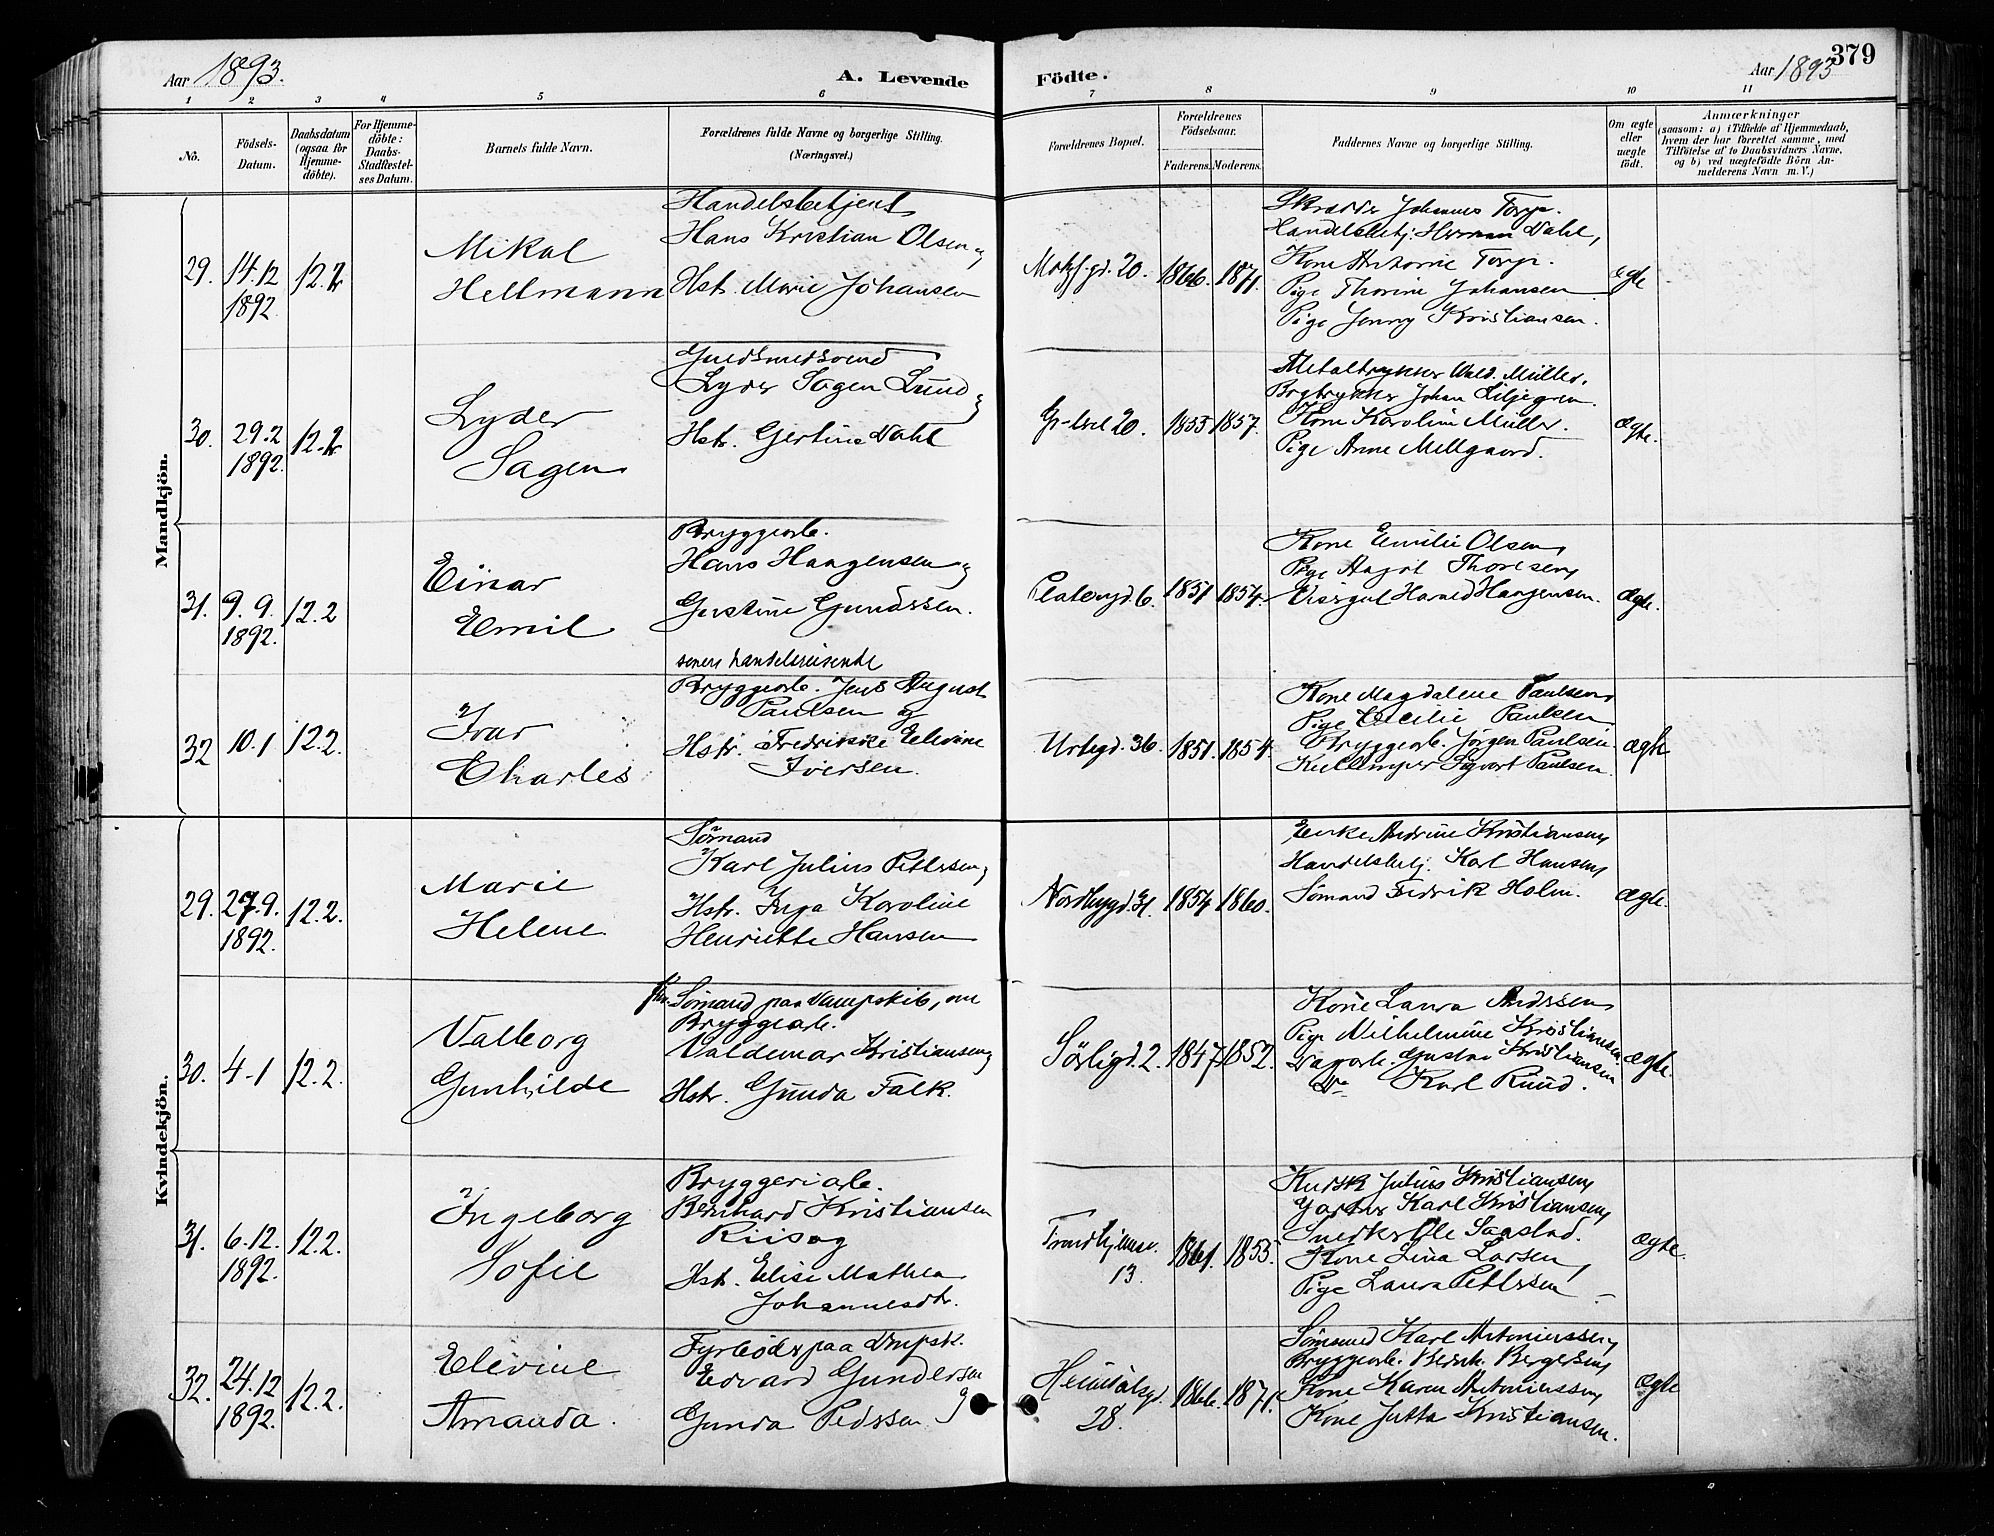 Aar 1893.
A. Levende
Födte.
Aar 1893
379
1 2 3 4 5 6 7 8 9 10 11
No.
Födsels-Datum.
Daabsdatum (ogsaa for Hjemme-döbte).
For Hjemme-döbte: Daabs-Stadfæstel-ses Datum.
Barnets fulde Navn.
Forældrenes fulde Navne og borgerlige Stilling.
(Næringsvei.)
Forældrenes Bopæl.
Forældrenes Födselsaar.
Faderens. Moderens.
Faddernes Navne og borgerlige Stilling.
Om ægte eller uægte födt.
Anmærkninger
(saasom: a) i Tilfælde af Hjemmedaab,
hvem der har forrettet samme, med
Tilföielse af to Daabsvidners Navne,
og b) ved uægtefödte Börn An-
melderens Navn m. V.)
Mandkjön.
29. 14.12 1892 12.2
Mikal
Hellmann
Handelsbetjent
Hans Kristian Olsen og
Hstr. Marie Johansen
20. 1866. 1871.
Skrædder Johannes Torp.
Handelsbetj. Herman Dahl,
Kone Antonie Torp.
Pige Thorine Johansen
Pige Jenny Kristiansen.
ægte
30. 29.2 1892. 12.2
Lyder
Sagen
Guldsmedsvend
Lyder Sagen Lund og
Hstr. Gertine Dahl
20. 1855 1857.
Metaltrykker Vald. Müller.
Bogtrykker Johan Liljegren.
Kone Karoline Müller.
Pige Anne Mellgaard.
ægte.
31. 9.9. 1892. 12.2
Einar
Emil
Bryggearb.
Hans Haagensen og
Gurstine Gundersen.
Platougd. 6. 1851 1854.
Kone Emilie Olsen,
Pige Hagst Thoresen,
Visergut Harald Haagensen.
ægte.
32 10.1 12.2.
Ivar
Charles
senere handelsreisende
Bryggearb. Jens August
Paulsen og
Hstr. Fredrikke Elevine
Iversen.
Urtegd. 36. 1851. 1854.
Kone Magdalene Paulsen,
Pige Cecilie Paulsen
Bryggearb. Jörgen Paulsen
Sigvart Paulsen.
ægte
Kvindekjön.
29. 27.9. 1892. 12.2.
Marie
Helene
Sömand
Karl Julius Pettersen og
Hstr. Inga Karoline
Henriette Hansen
Nordbygd. 31. 1854 1860.
Enke Andrine Kristiansen,
Handelsbetj. Karl Hansen,
Sömand Fedrik Holm.
ægte.
30. 4-1 12.2.
Valborg
Gunhilde
Sömand paa Dampskib, nu
Bryggearb.
Valdemar Kristiansen og
Hstr. Gunda Falk.
Sörligd. 2. 1847. 1852.
Kone Laura Andersen
Pige Vilhelmine Kristiansen
Dagarb. Gustav Kristiansen
Do Karl Ruud.
ægte.
31. 6.12. 1892. 12.2.
Ingeborg
Sofie
Bryggeriarb.
Bernhard Kristiansen
Riis og
Hst. Elise Mathea
Johannesdtr.
Trondhjemsv. 13. 1861. 1855.
Kudsk Julius Kristiansen,
Gartner Karl Kristiansen,
Snedker Ole Saastad.
Kone Lina Larsen,
Pige Laura Pettersen
ægte.
32. 24.12 1892. 12.2.
Elevine
Amanda.
Fyrböder paa Dmpsk.
Edvard Gundersen
og
Gunda Pedersen
Heimdalsgd. 28. 1866. 1871.
Sömand Karl Antoniussen,
Bryggearb. Bernh. Bergersen,
Kone Karen Antoniussen,
Kone Jutta Kristiansen.
ægte